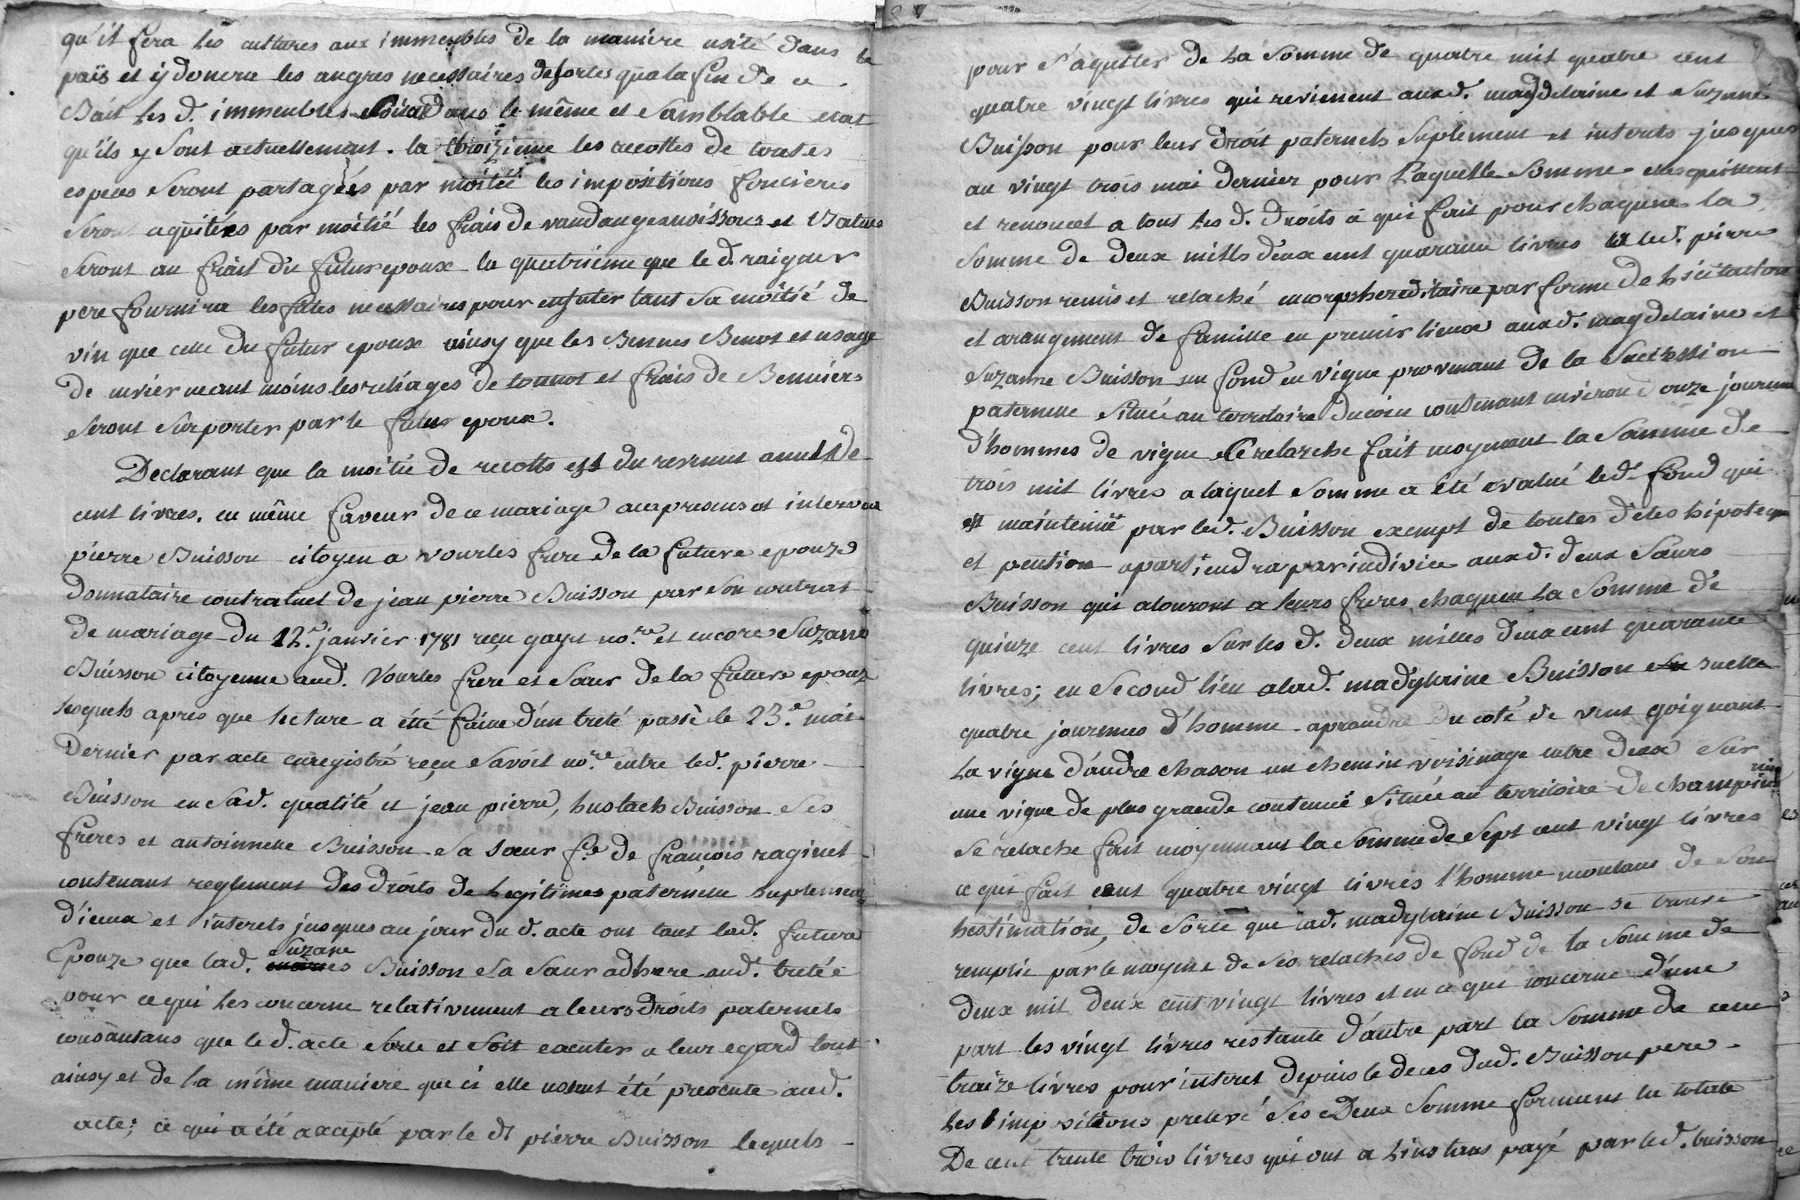 qu'il fera les cultures aux immeubles de la maniere usité dans le
païs et ÿ donera les angres necessaires desortes qu'a la fin de ce
Bail les d. immeubles soient dans le même et samblable etat
qu'ils y sont actuellemant. la troizieme les recottes de toutes
especes seront partagées par moitié les impositions foncieres
seront aquitées par moitié les frais de vandange moissons et
seront au frait du futur epoux la quatrieme que le d. raigaur
pere fournira les futes necessaires pour enfuter tant sa moitié de
vin que celle du futur epoux ainsy que les Bennes Benot et usage
de cuvier meant moins les reliages de tonnot et frais de Benniers
seront surportes par le futur epoux.
Declarant que la moitié de recotte est du revenut annuel de
cent livres. en même faveur de ce mariage aux presens et intervenu
pierre Buisson citoyen a Vourles frere de la future epouze
donnataire contratuel de jean pierre Buisson par son contrat
de mariage du 12.e janvier 1781 reçu gayet no.re et encore Suzanne
Buisson citoyenne aud. Vourles frere et sœur de la future epouze
lesquels apres que lecture a été faitte d'un treté passé le 23.e mai
Dernier par acte enregistré reçu Savoit no.re entre led. pierre
Buisson en sad. qualité et jean pierre, hustach Buisson ses
freres et antoinnette Buisson sa sœur f.e de françois raginel
contenant reglement des droits de legitimes paternelle suplement
d'iceux et interets jusques au jour du d. acte ont tant lad. future
Epouze que lad. Suzane Buisson sa sœur adhere aud. tretée
pour ce qui les concerne relativement a leurs droits paternels
consantans que le d. acte sorte et soit executer a leur egard tout
ainsy et de la même maniere que ci elle usseut été presente aud.
acte; ce qui a été accepté par le d. pierre Buisson lequels
pour s'aquitter de la somme de quatre mil quatre cent
quatre vingt livres qui revienent auxd. magdelaine et Suzanne
Buisson pour leur droit paternels suplement et interets jusques
au vingt trois mai dernier pour laquelle somme elles quittent
et renoncet a tout les d. droits ce qui fait pour chaqune la
somme de deux mille deux cent quarante livres led. pierre
Buisson remis et relaché en corps hereditaire par forme de licitation
et arangement de famille en premier lieux auxd. magdelaine et
Suzanne Buisson un fond en vigne provenant de la succession
paternelle située au territoire du coin contenant environ douze journée
d'hommes de vigne ce relarche fait moyenant la somme de
trois mil livres a laquel somme a été evalué led. fond qui
est maintenut par led. Buisson exempt de toutes dètes hipoteque
et pention apartiendra par indivice auxd. deux sœurs
Buisson qui alouront a leurs freres chaqune la somme de
quinze cent livres sur les d. deux milles deux cent quarante
livres; en second lieu a lad. madylaine Buisson suelle
quatre journées d'homme a prandre du coté de vent joignant
la vigne d'andre chason un chemin voisinage entre deux sur
une vigne de plus grande contenue située au territoire de champrin
se relache fait moyennant la somme de sept cent vingt livres
ce qui fait cent quatre vingt livres l'homme montant de son
hestimation, de sorte que lad. madylaine Buisson se trouve
remplie par le moyene de ses relaches de fond de la somme de
deux mil deux cent vingt livres et en ce que concerne d'une
part les vingt livres restante d'autre part la somme de cent
traize livres pour interet depuis le deces dud. Buisson pere
les impositions prelevé ses deux somme formant la totale
De cent trente trois livres qui ont a linstans payé par led. buisson